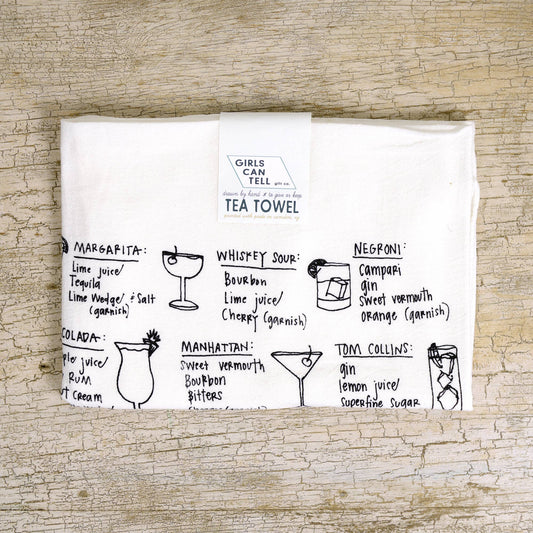 GIRLS
CAN
TELL
gift co.
drawn by hand & to give or keep
TEA TOWEL
MARGARITA:
Lime juice/
Tequila
Lime Wedge/ & Salt
(garnish)
WHISKEY SOUR:
Bourbon
Lime juice/
Cherry (garnish)
NEGRONI:
Campari
gin
Sweet vermouth
orange (garnish)
COLADA:
juice/
RUM
Cream
MANHATTAN:
Sweet vermouth
Bourbon
Bitters
TOM COLLINS:
gin
lemon juice/
Superfine Sugar